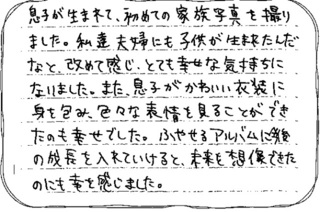 息子が生まれて、初めての家族写真を撮り
ました。私達夫婦にも子供が生まれたんだ
なと、改めて感じ、とても幸せな気持ちに
なりました。また、息子がかわいい衣装に
身を包み、色々な表情を見ることができ
たのも幸せでした。ふやせるアルバムに後
の成長を入れていけると、未来を想像できた
のにも幸を感じました。